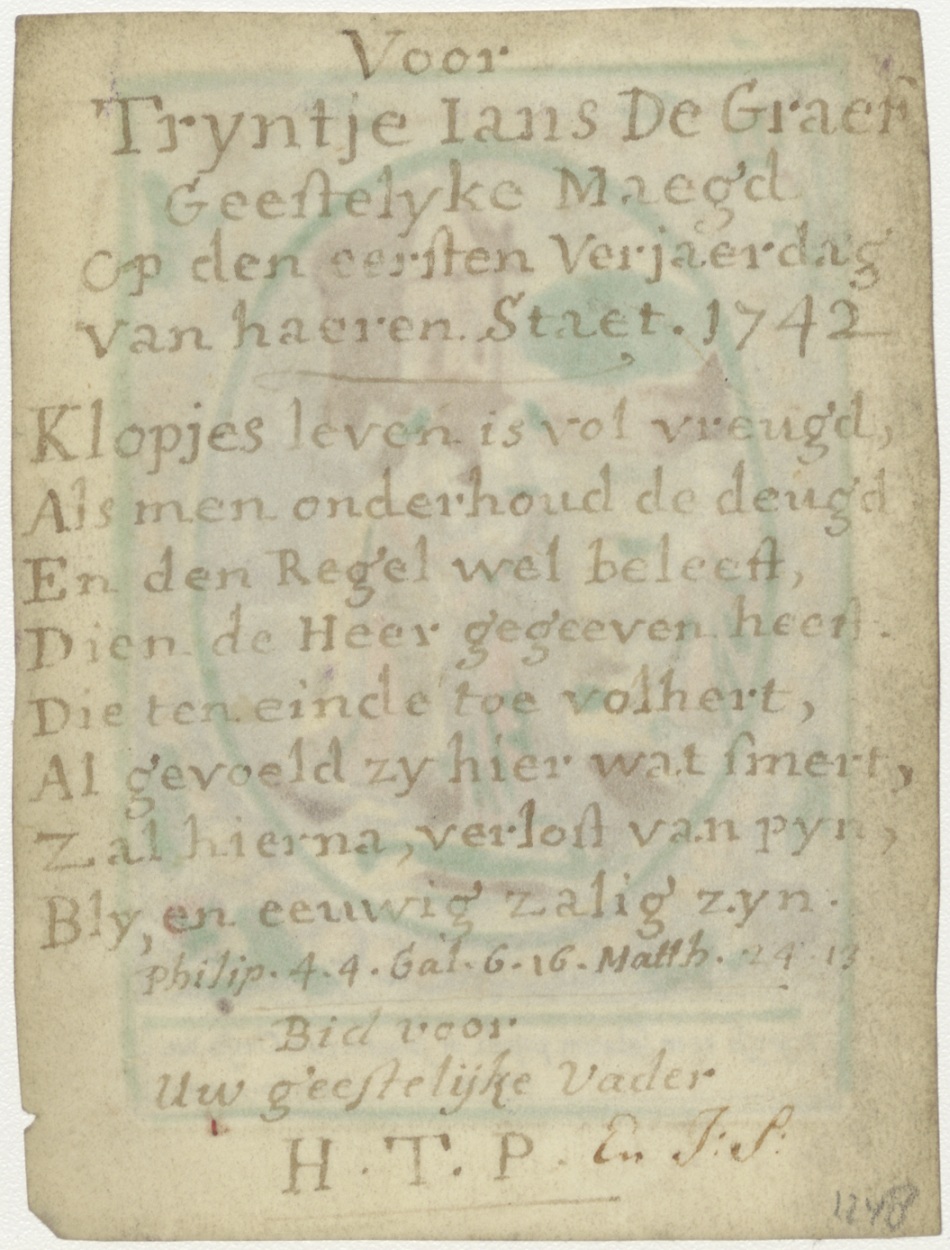 Voor
Tryntje Ians De Graef
Geeſtelyke Maegd
Op den eerſten Verjaerdag
van haeren Staet. 1742
Klopjes leven is vol vreugd,
Als men onderhoud de deugd
En den Regel wel beleeft,
Dien de Heer gegeeven heeft.
Die ten einde toe volhert,
Al gevoeld zy hier wat ſmert,
Zal hierna, verloſt van pyn,
Bly, en eeuwig zalig zyn.
Philip. 4.4. Gal. 6.16. Matth. 24 13
Bid voor
Uw geeſtelijke Vader
H. T. P. En J: S:
1248